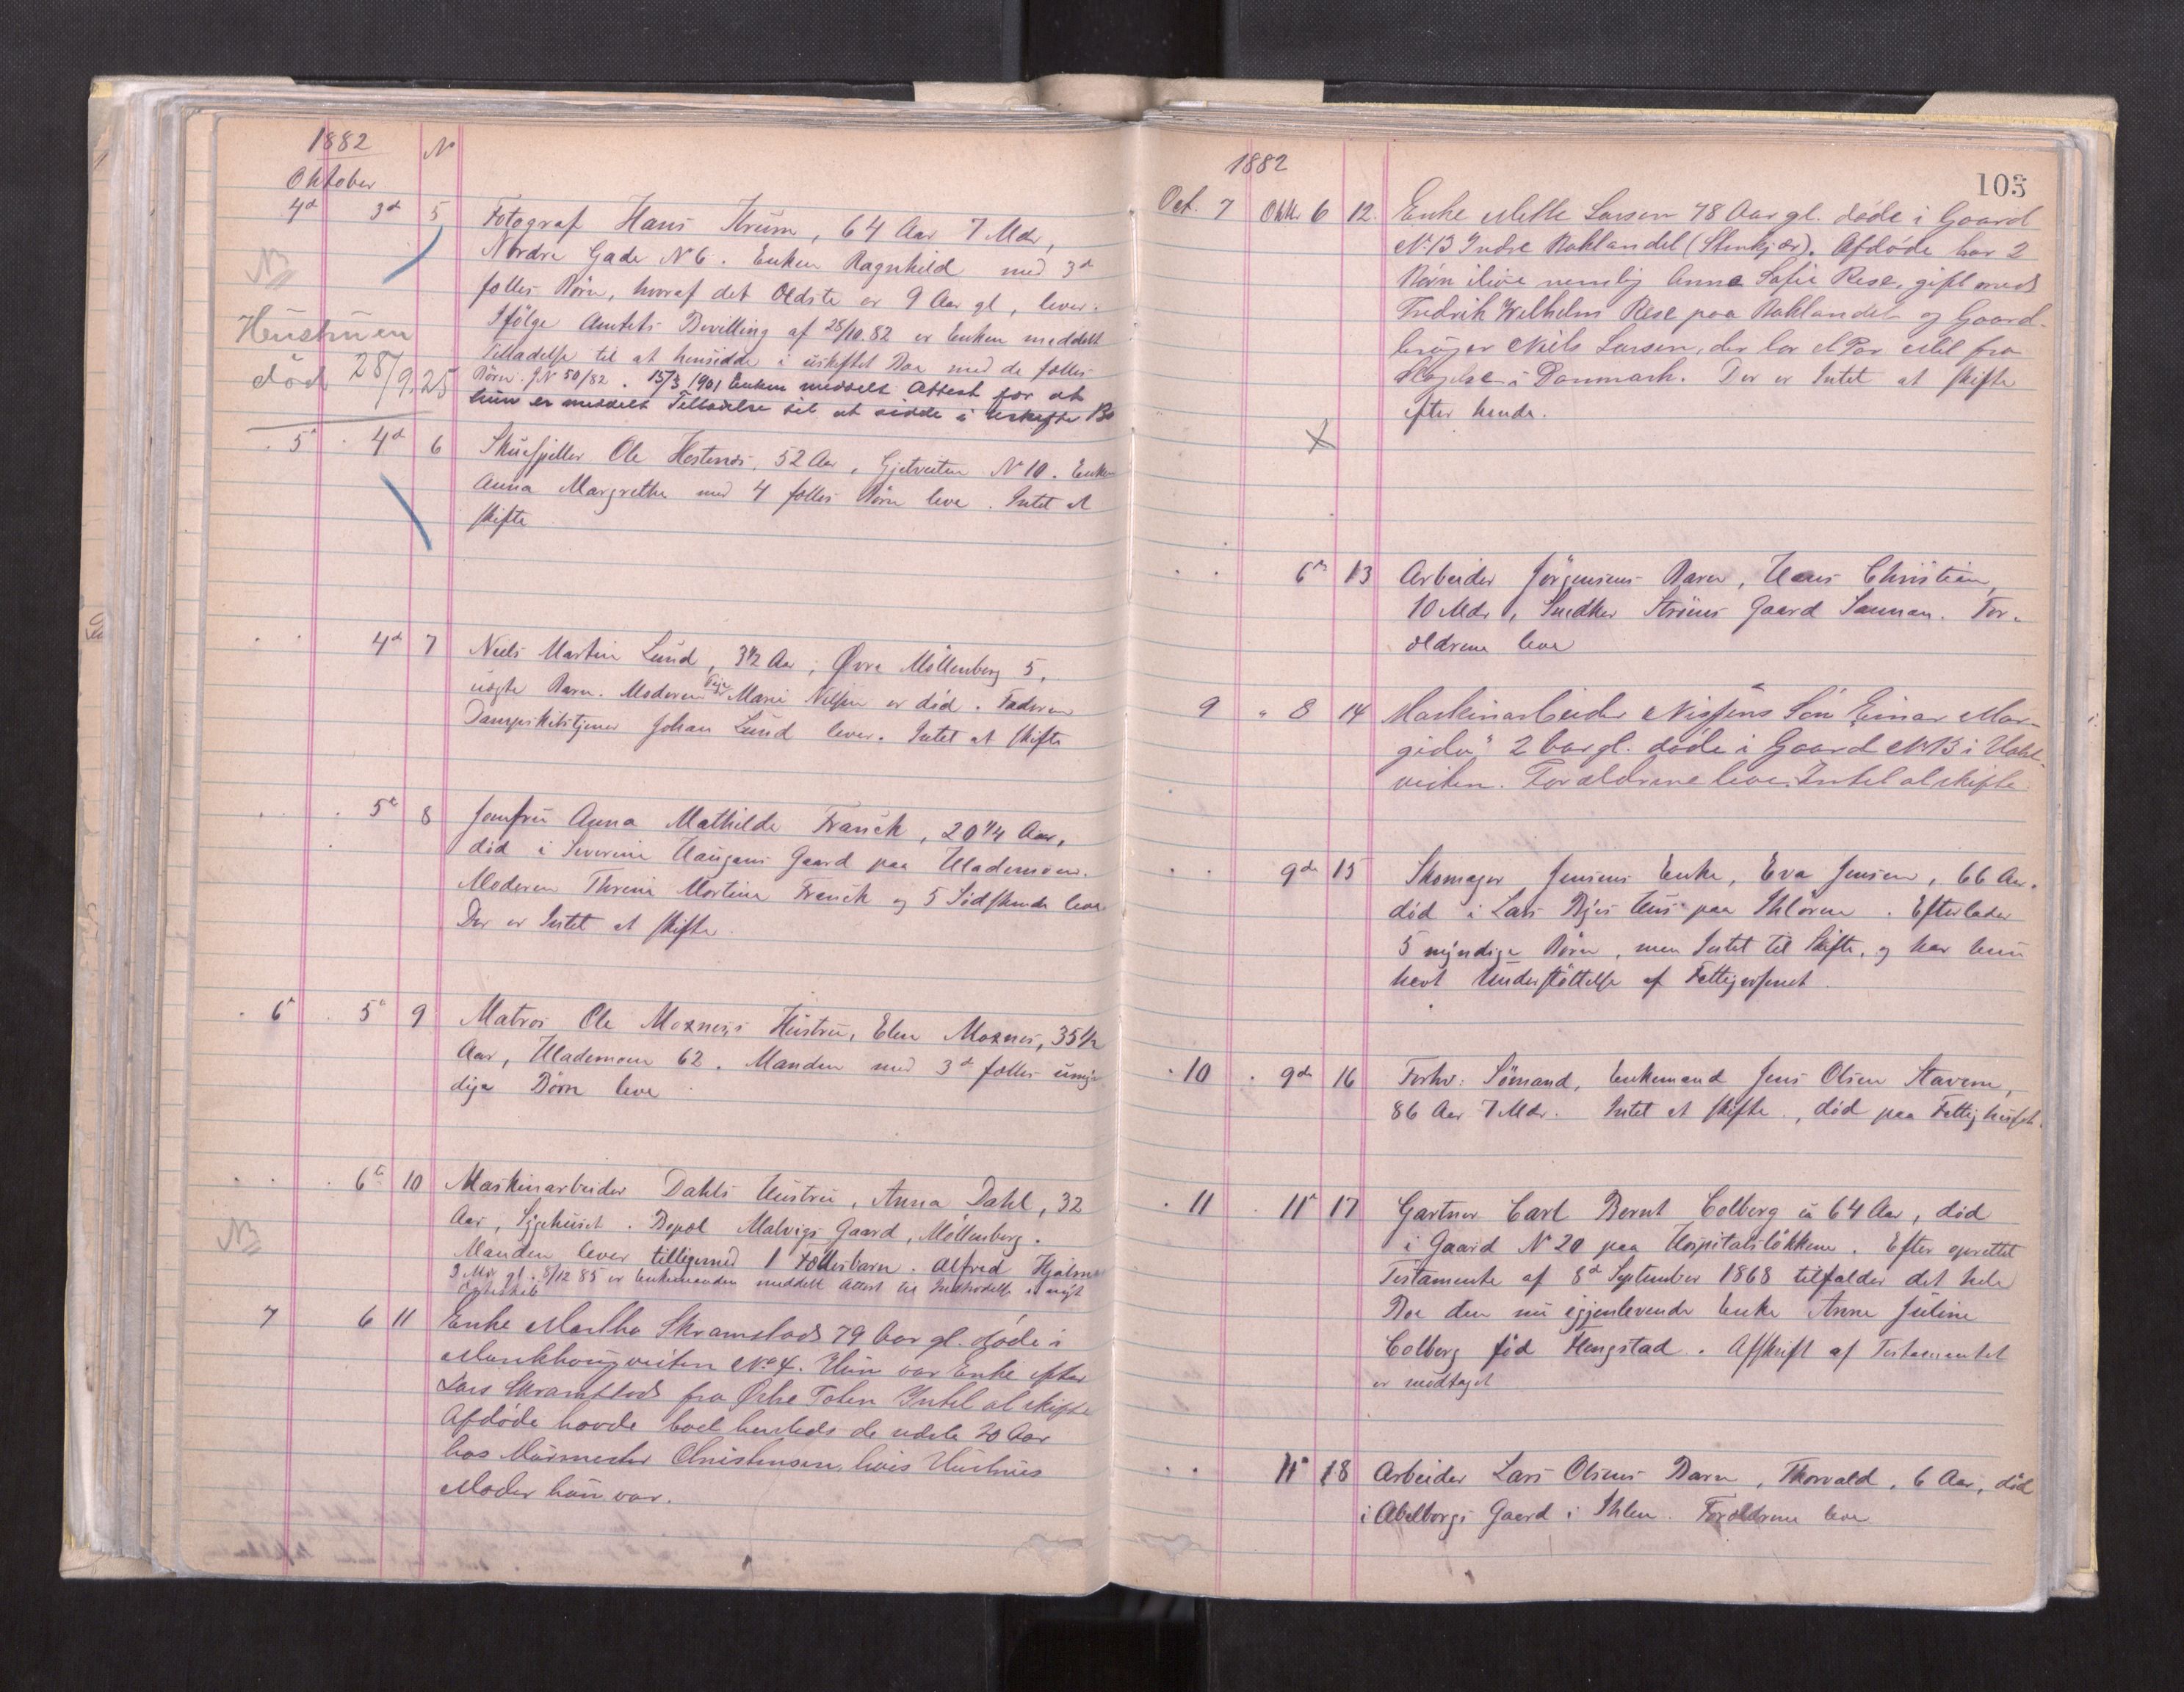 1882
No
Oktober
4de 3de 5 Fotograf Hans Krum, 64 Aar 7 Mdr,
NB Nordre Gade No 6. Enken Ragnhild med 3de
fælles Børn, hvoraf det Ældste er 9 Aar gl, lever.
Hustruen Ifølge Amtets Bevilling af 28/10.82 er Enken meddelt
død 28/9.25 Tilladelse til at hensidde i uskiftet Boe med de fælles
Børn. J No 50/82. 15/3 1901 Enken meddelt Attest for at
hun er meddelt Tilladelse til at sidde i Uskiftet Bo
5te 4de 6 Skuespiller Ole Hestnæs, 52 Aar, Gjetveiten No 10. Enken
Anna Margrethe med 4 fælles Børn leve. Intet at
skifte
4de 7 Niels Martin Lund, 3 1/2 Aar, Øvre Møllenberg 5,
uægte Barn. Moderen Pige Marie Nilssen er død. Faderen
Dampskibstjener Johan Lund lever. Intet at skifte
5te 8 Jomfru Anna Mathilde Franck, 20 1/4 Aar,
død i Severine Haugans Gaard paa Ilademoen.
Moderen Thrine Martine Franck og 5 Sødskende leve
Der er Intet at skifte.
6te 5te 9 Matros Ole Moxness Hustru, Elen Moxnes, 35 1/2
Aar, Ilademoen 62. Manden med 3de fælles umyn-
dige Børn leve
6te 10 Maskinarbeider Dahls Hustru, Anna Dahl, 32
NB Aar, Sygehuset. Bopæl Malvigs Gaard, Møllenberg.
Manden lever tilligemed 1 Fællesbarn. Alfred Hjalmar
3 Mdr gl. 5/12 85 er Enkemanden meddelt Attest til Indtrædelse i nyt
Ægteskab
7 6 11 Enke Martha Skramstad 79 Aar gl. døde i
Munkhougveiten No 4. Hun var Enke efter
Lars Skramstad fra Østre Toten Intet at skifte
Afdøde havde boet hersteds de sidste 20 Aar
hos Murmester Christensen, hvis Hustrues
Moder hun var.
1882
103
Oct. 7 Oktbr 6 12. Enke Mette Larsen 78 Aar gl. døde i Gaard
No 13 Indre Baklandet (Stenkjær). Afdøde har 2
Børn ilive nemlig Anne Sofie Rese, gift med
Fredrik Wilhelm Rese paa Baklandet og Gaard-
bruger Niels Larsen, der bor
Slagelse i Danmark. Der er Intet at skifte
efter hende.
6te 13 Arbeider Jørgensens Barn, Hans Christian,
10 Mdr, Snedker Strøms Gaard Sannan. For-
ældrene leve
9 " 8 14 Maskinarbeider Nissens Søn "Einar Mar-
gido" 2 Aar gl. døde i Gaard No 13 i
veiten. Forældrene leve. Intet at skifte
9de 15 Skomager Jensens Enke, Eva Jensen, 66 Aar.
død i Lars Byes Hus paa Ihløren. Efterlader
5 myndige Børn, men Intet til Skifte, og har hun
havt Understøttelse af Fattigvæsenet
10 9de 16 Forhv: Sømand, Enkemand Jens Olsen Stavern,
86 Aar 7 Mdr. Intet at skifte., død paa Fattighuset.
11 11te 17 Gartner Carl Bernt Colberg 64 Aar, død
i Gaard No 20 paa Hospitalsløkken. Efter oprettet
Testamente af 8de September 1868 tilfalder det hele
Boe den nu igjenlevende Enke Anne Juline
Colberg fød Hengstad. Afskrift af Testamentet
er modtaget
11te 18 Arbeider Lars Olsens Barn, Thorvald, 6 Aar, død
i Abelborgs Gaard i Ihlen. Forældrene leve